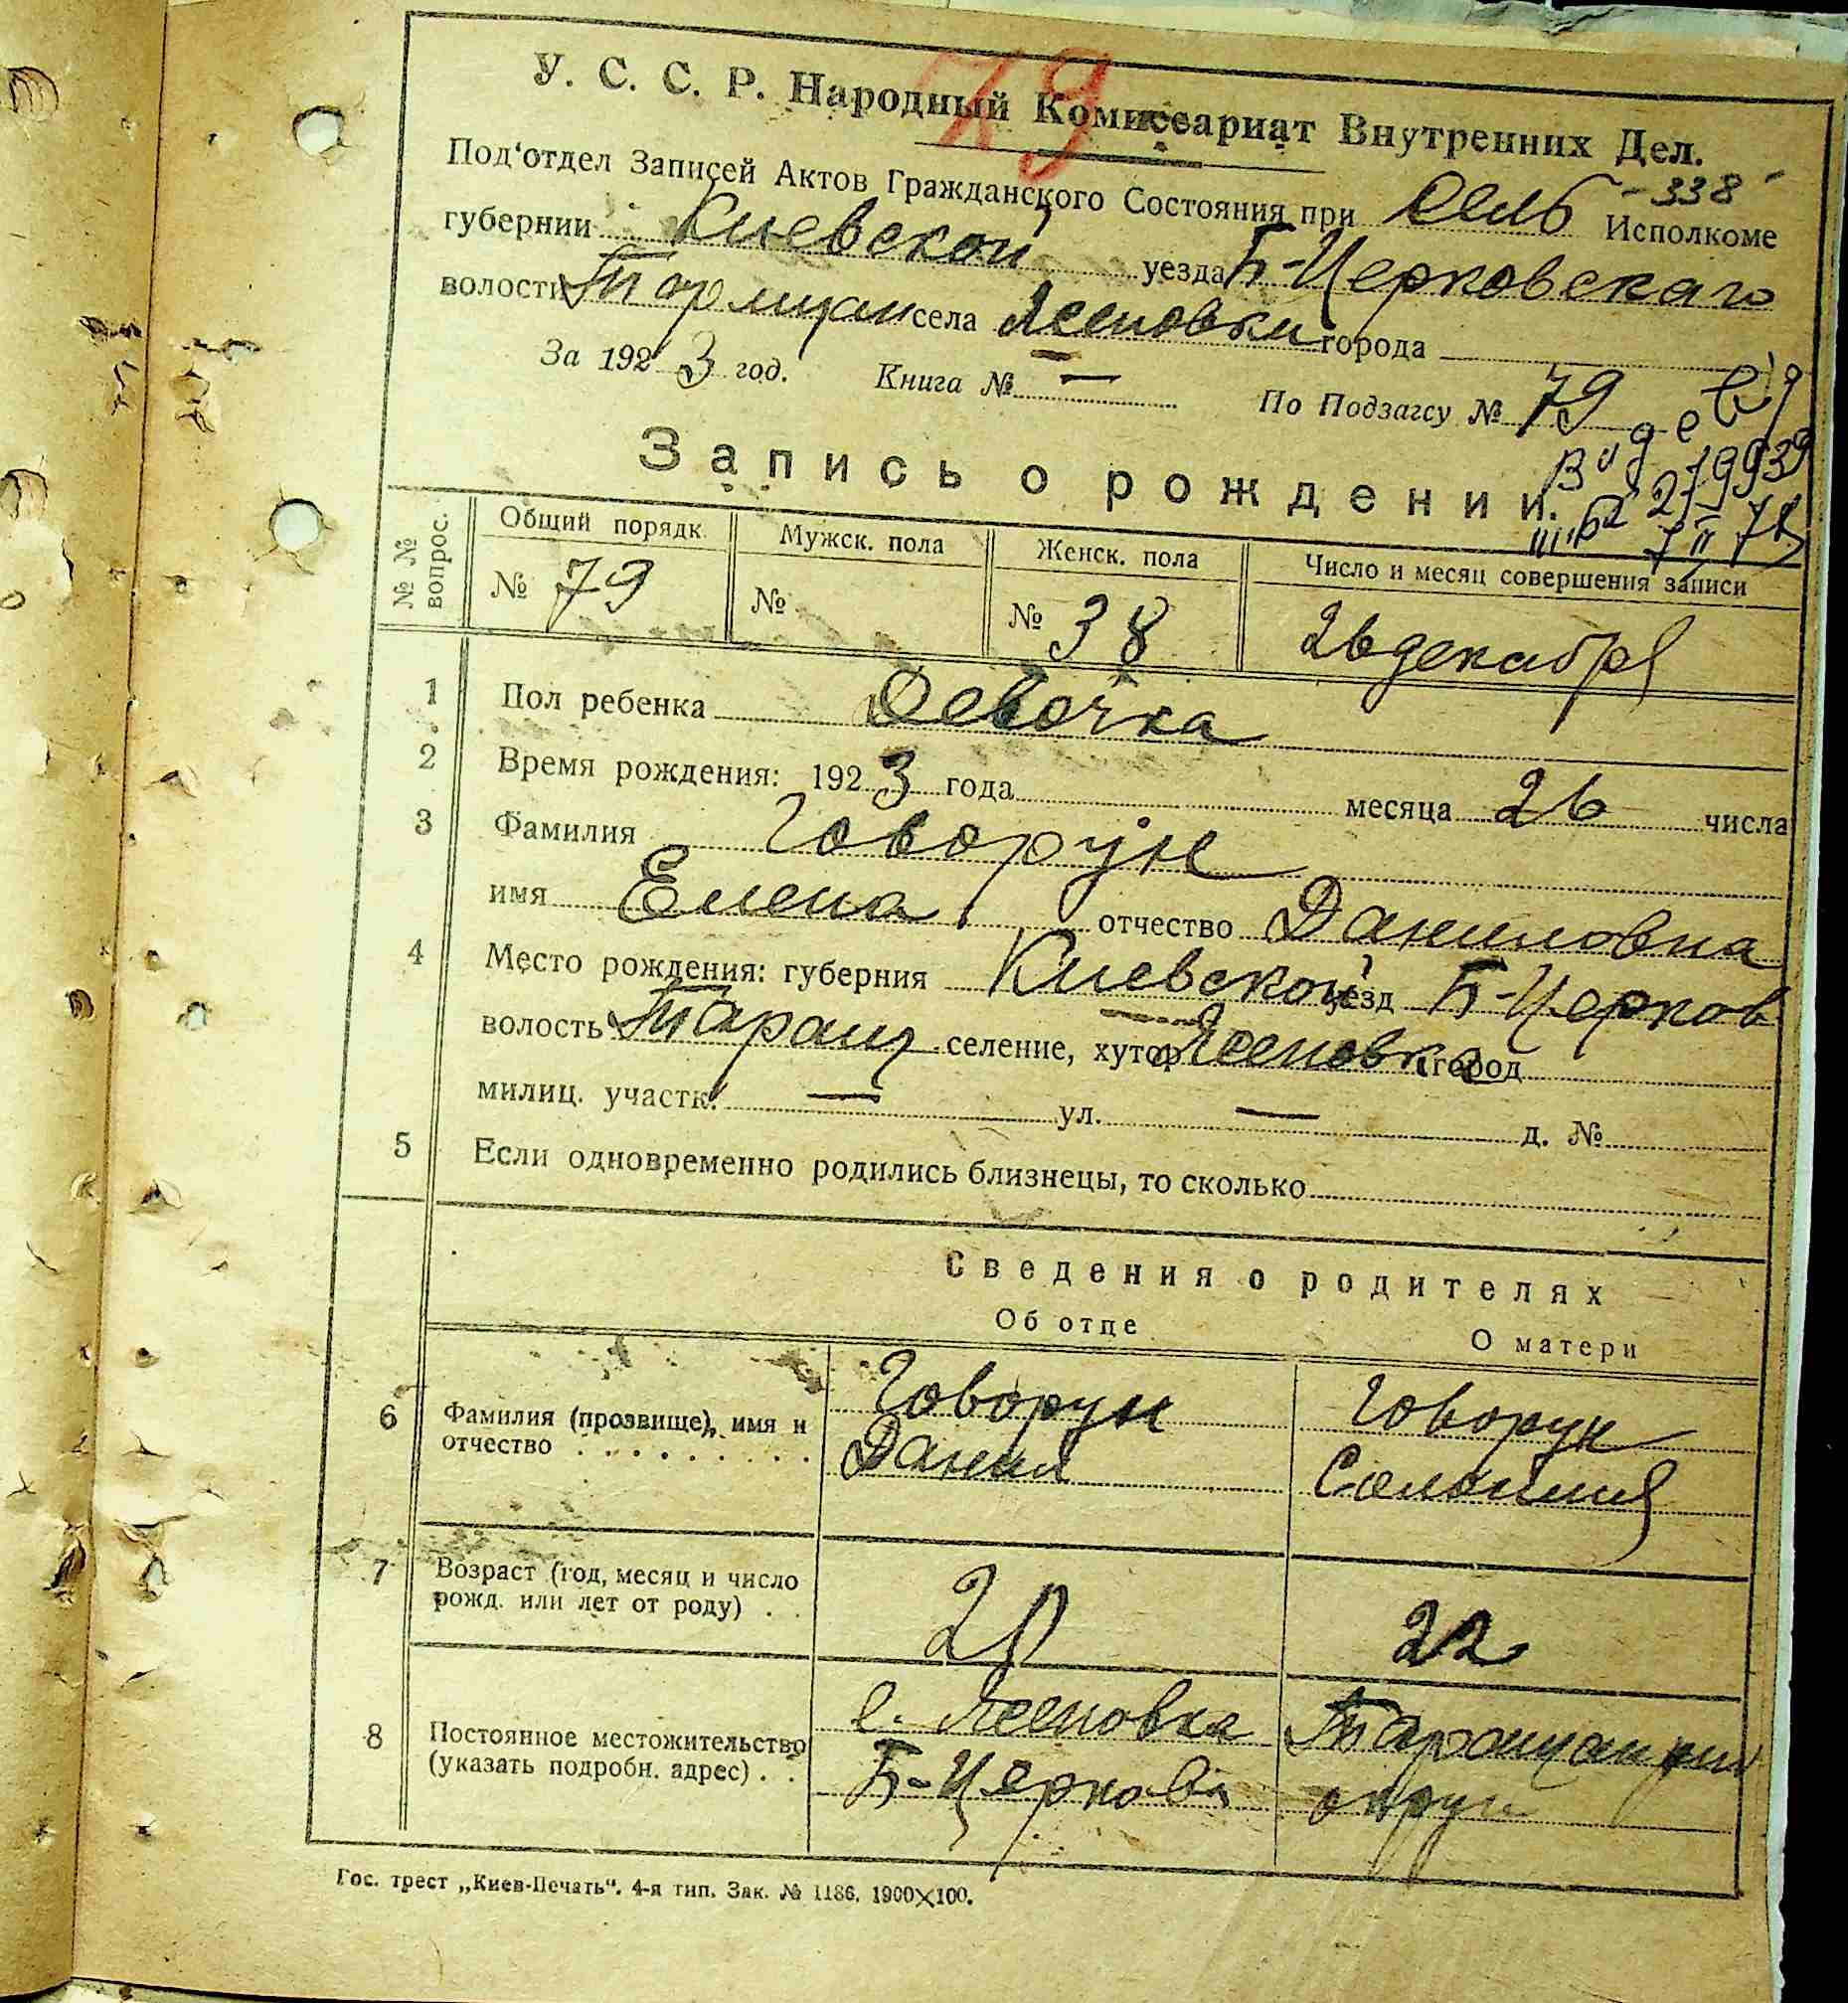 79
У. С. С. Р. Народный Комиссариат Внутренних Дел.
- 338 -
Под'отдел Записей Актов Гражданского Состояния при Сель Исполкоме
губернии Киевской уезда Б-Церковскаго
волости села Ясеновки города
За 1923 год. Книга № — По Подзагсу № 79
Запись о рождении.
III БЦ 279939
7 II 78
№ № вопрос. Общий порядк. Мужск. пола Женск. пола Число и месяц совершения записи
№ 79 № № 38 26 декабря
1 Пол ребенка Девочка
2 Время рождения: 1923 года месяца 26 числа
3 Фамилия Говорун
имя Елена отчество Даниловна
4 Место рождения: губерния Киевской уезд Б-Церков
волость Таращ селение, хутор Ясеновка город
милиц. участк. — ул. — д. №
5 Если одновременно родились близнецы, то сколько
Сведения о родителях
Об отце О матери
6 Фамилия (прозвище), имя и отчество Говорун Данил Говорун Соломия
7 Возраст (год, месяц и число рожд. или лет от роду) 20 22
8 Постоянное местожительство (указать подробн. адрес) с. Ясеновка
Б-Церков округ
Гос. трест „Киев-Печать". 4-я тип. Зак. № 1186. 1900×100.